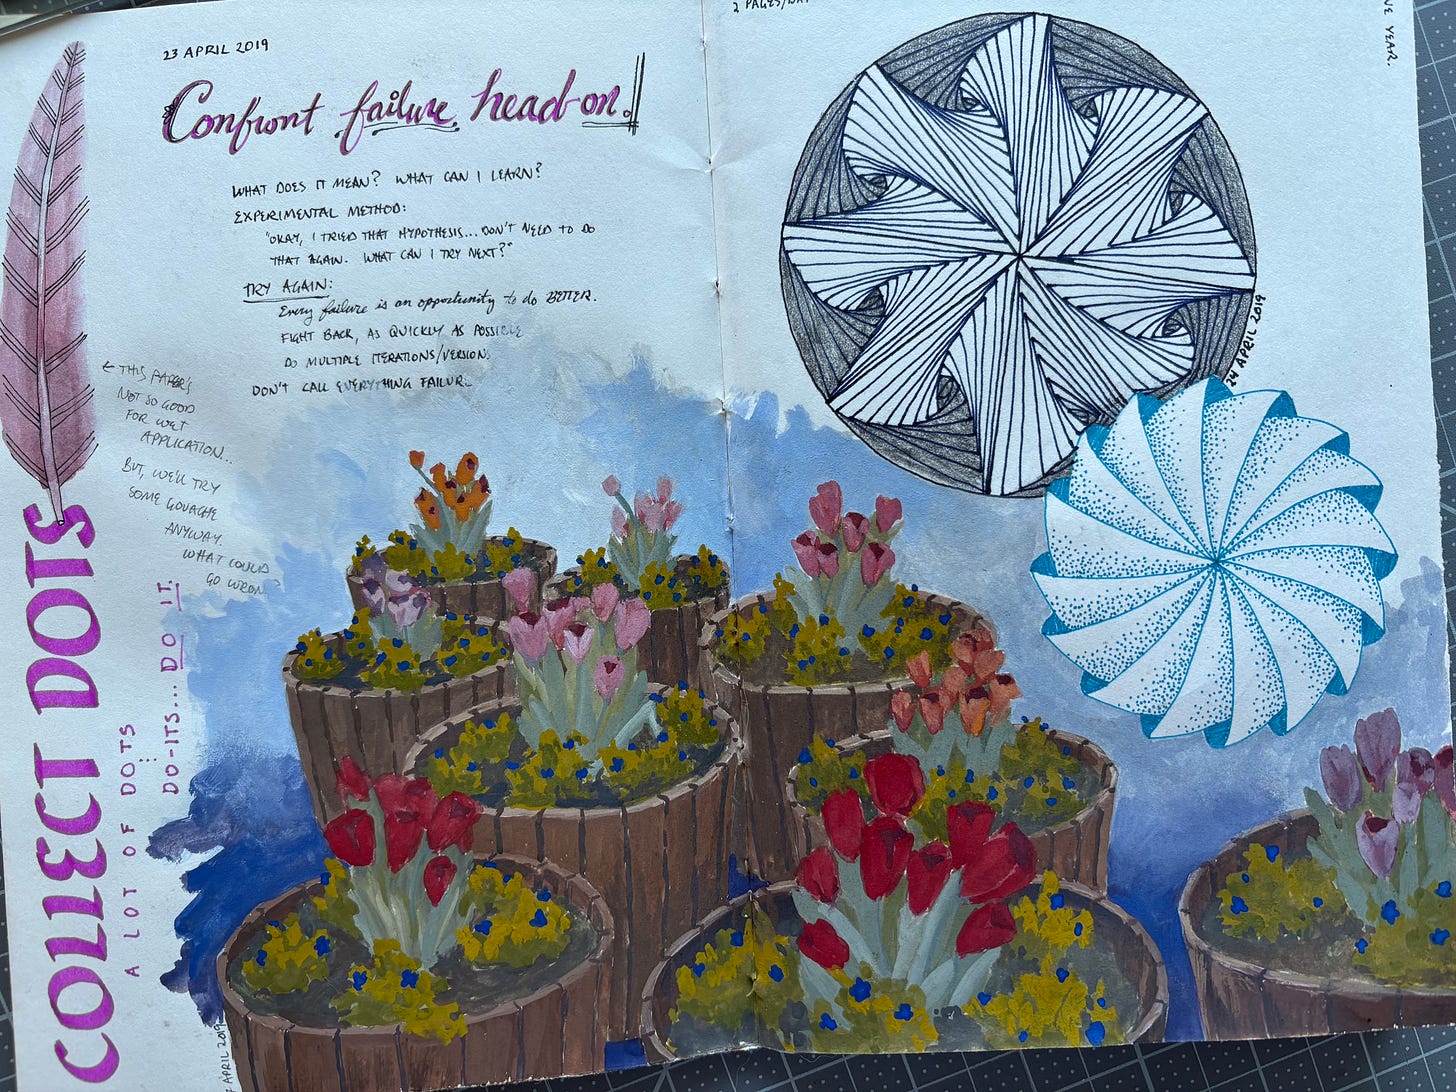 23 APRIL 2019
Confront failure head-on!
WHAT DOES IT MEAN? WHAT CAN I LEARN?
EXPERIMENTAL METHOD:
"OKAY, I TRIED THAT HYPOTHESIS... DON'T NEED TO DO
THAT AGAIN. WHAT CAN I TRY NEXT?"
TRY AGAIN:
Every failure is an opportunity to do BETTER.
FIGHT BACK, AS QUICKLY AS POSSIBLE
DO MULTIPLE ITERATIONS/VERSIONS
DON'T CALL EVERYTHING FAILURE
← THIS PAPER'S
NOT SO GOOD
FOR WET
APPLICATION...
BUT, WE'LL TRY
SOME GOUACHE
ANYWAY.
WHAT COULD
GO WRONG?
COLLECT DOTS
A LOT OF DOTS
DO-ITS... DO IT.
APRIL 2019
2 PAGES/DAY
YEAR.
24 APRIL 2019